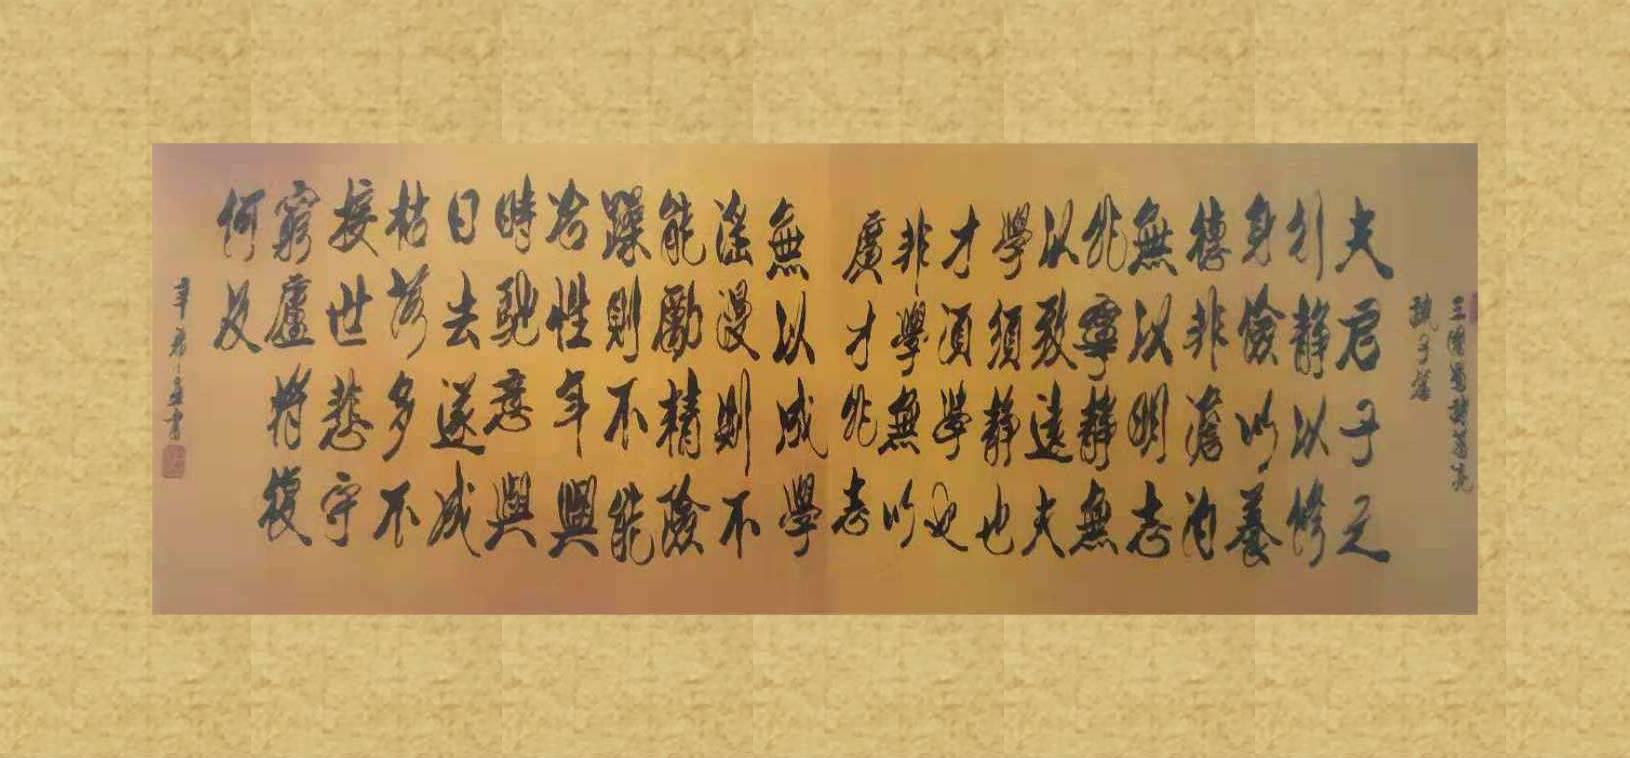 三國蜀諸葛亮
誡子書
夫君子之
行靜以修
身儉以養
德非澹泊
無以明志
非寧靜無
以致遠夫
學須靜也
才須學也
非學無以
廣才非志
無以成學
滛漫則不
能勵精險
躁則不能
冶性年與
時馳意與
日去遂成
枯落多不
接世悲守
窮廬將復
何及
書